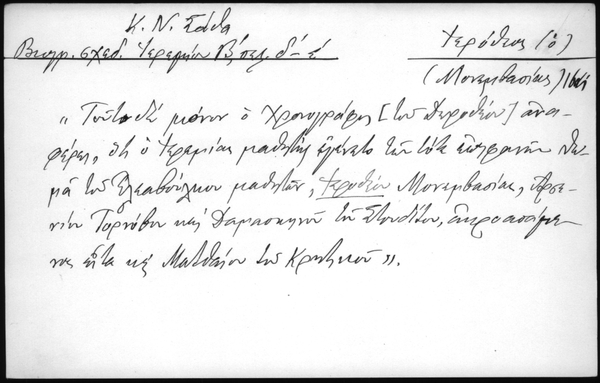 Κ. Ν. Σάθα
Βιογρ. σχεδ. Ἱερεμίου Β΄, σελ. δ-ε
Ἱερόθεος (ὁ)
(Μονεμβασίας)
"Τοῦτο δὲ μόνον ὁ Χρονογράφος [τοῦ Δωροθέου] ἀνα-
φέρει, ὅτι ὁ Ἱερεμίας μαθητὴς ἐγένετο τῶν τότε ἐπιφανῶν
μᾶ τοῦ Ἐλεαβούλκου μαθητῶν, Ἱεροθέου Μονεμβασίας, Ἀρσε-
νίου Τορνόβου καὶ Δαμασκηνοῦ τοῦ Στουδίτου, ἀκροασάμε-
νος εἶτα καὶ Ματθαίου τοῦ Κρητικοῦ".